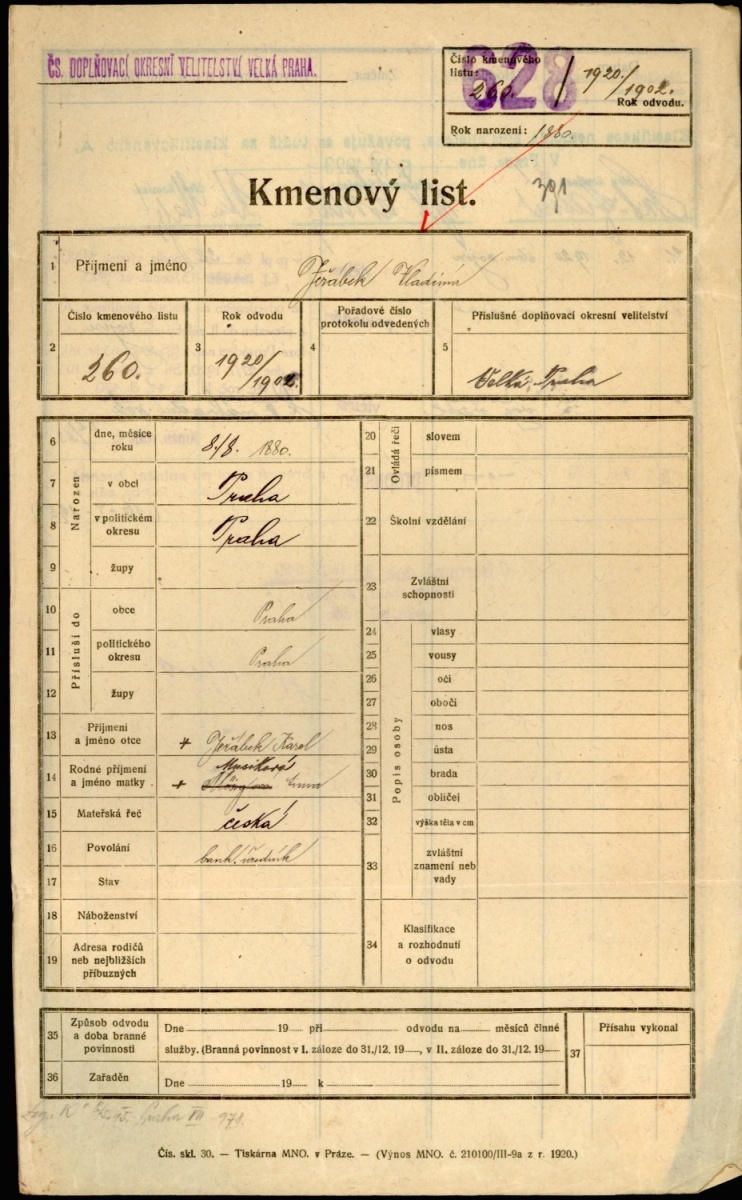 ČS. DOPLŇOVACÍ OKRESNÍ VELITELSTVÍ VELKÁ PRAHA.
628
Číslo kmenového
listu:
260. / 1920/1902.
Rok odvodu.
Rok narození: 1880.
Kmenový list.
391
1 Příjmení a jméno Jeřábek Vladimír
2 Číslo kmenového listu 260.
3 Rok odvodu 1920/1902.
4 Pořadové číslo protokolu odvedených
5 Příslušné doplňovací okresní velitelství Velká Praha
Narozen
6 dne, měsíce roku 8/8. 1880.
7 v obci Praha
8 v politickém okresu Praha
9 župy
Přísluší do
10 obce Praha
11 politického okresu Praha
12 župy
13 Příjmení a jméno otce + Jeřábek Karel
14 Rodné příjmení a jméno matky + Musiková
15 Mateřská řeč česká
16 Povolání bank. úředník
17 Stav
18 Náboženství
19 Adresa rodičů neb nejbližších příbuzných
Ovládá řeči
20 slovem
21 písmem
22 Školní vzdělání
23 Zvláštní schopnosti
Popis osoby
24 vlasy
25 vousy
26 oči
27 obočí
28 nos
29 ústa
30 brada
31 obličej
32 výška těla v cm
33 zvláštní znamení neb vady
34 Klasifikace a rozhodnutí o odvodu
35 Způsob odvodu a doba branné povinnosti
Dne 19 při odvodu na měsíců činné
služby. (Branná povinnost v I. záloze do 31./12. 19, v II. záloze do 31./12. 19
36 Zařaděn Dne 19 k
37 Přísahu vykonal
Praha VII 978.
Čís. skl. 30. — Tiskárna MNO. v Práze. — (Výnos MNO. č. 210100/III-9a z r. 1920.)